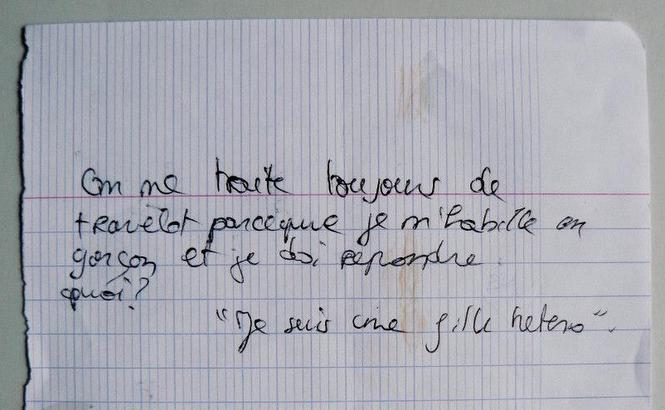 On me traite toujours de
travelot parceque je m'habille en
garçon et je doi repondre
quoi?
"Je suis une fille hetero".